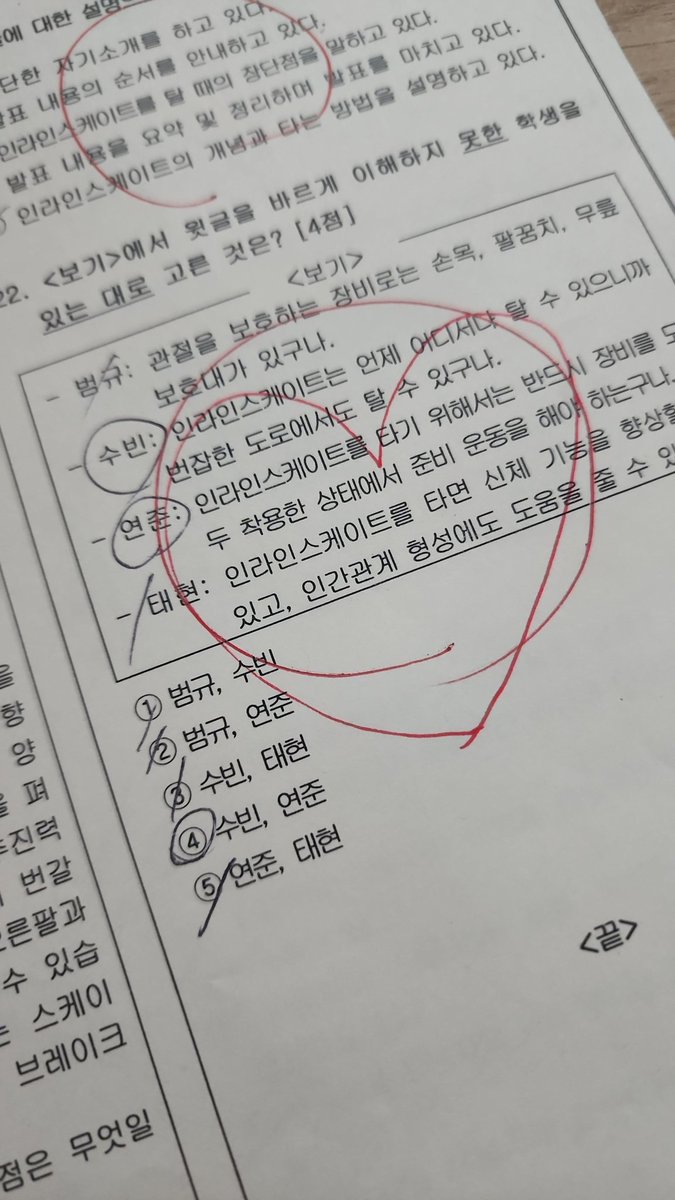 에 대한 설명
단한 자기소개를 하고 있다.
발표 내용의 순서를 안내하고 있다.
인라인스케이트를 탈 때의 장단점을 말하고 있다.
발표 내용을 요약 및 정리하며 발표를 마치고 있다.
인라인스케이트의 개념과 타는 방법을 설명하고 있다.
22. <보기>에서 윗글을 바르게 이해하지 못한 학생을
있는 대로 고른 것은? [4점]
<보기>
- 범규: 관절을 보호하는 장비로는 손목, 팔꿈치, 무릎
보호대가 있구나.
- 수빈: 인라인스케이트는 언제 어디서나 탈 수 있으니까
번잡한 도로에서도 탈 수 있구나.
- 연준: 인라인스케이트를 타기 위해서는 반드시 장비를 모
두 착용한 상태에서 준비 운동을 해야 하는구나.
- 태현: 인라인스케이트를 타면 신체 기능을 향상할
있고, 인간관계 형성에도 도움을 줄 수 있
① 범규, 수빈
② 범규, 연준
③ 수빈, 태현
④ 수빈, 연준
⑤ 연준, 태현
<끝>
을
향
양
을 펴
추진력
번갈
오른팔과
수 있습
는 스케이
브레이크
점은 무엇일